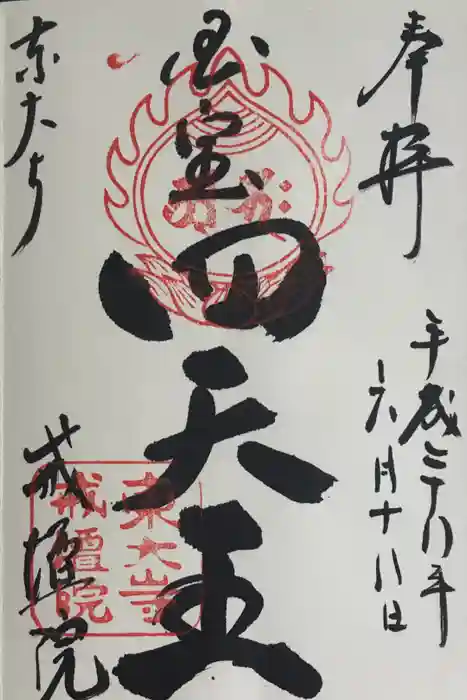 奉拝
平成二十八年
六月十八日
国宝
四天王
東大寺
戒壇院
東大寺
戒壇院